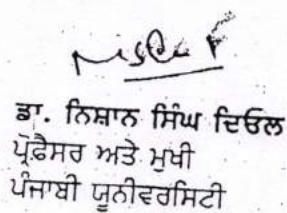 ਡਾ. ਨਿਸ਼ਾਨ ਸਿੰਘ ਦਿਓਲ
ਪ੍ਰੋਫ਼ੈਸਰ ਅਤੇ ਮੁਖੀ
ਪੰਜਾਬੀ ਯੂਨੀਵਰਸਿਟੀ